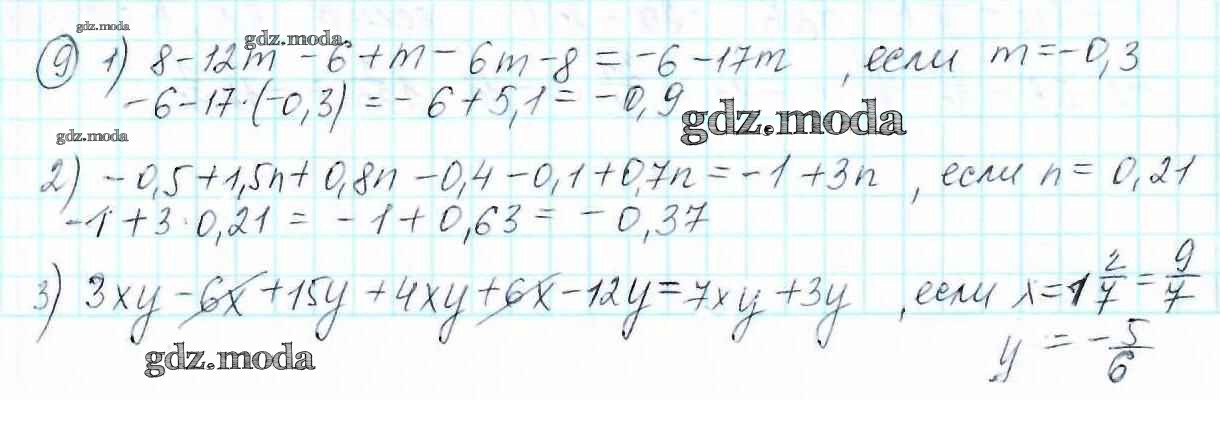 gdz.moda
gdz.moda
9 1) 8 - 12m - 6 + m - 6m - 8 = -6 - 17m , если m = -0,3
-6 - 17·(-0,3) = -6 + 5,1 = -0,9
gdz.moda
gdz.moda
2) -0,5 + 1,5n + 0,8n - 0,4 - 0,1 + 0,7n = -1 + 3n , если n = 0,21
-1 + 3·0,21 = -1 + 0,63 = -0,37
3) 3xy - 6x + 15y + 4xy + 6x - 12y = 7xy + 3y , если x = 1 2/7 = 9/7
y = -5/6
gdz.moda